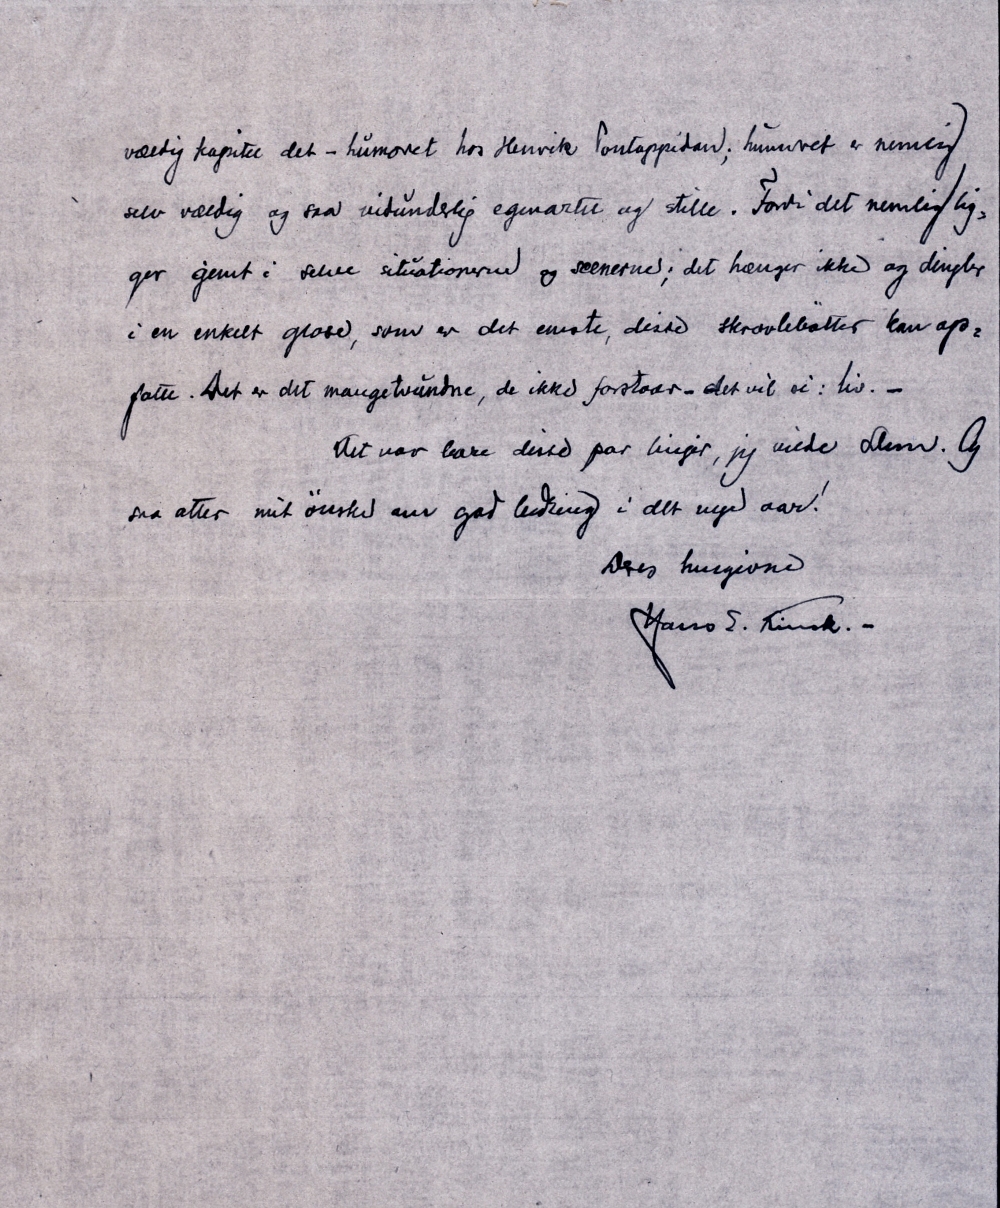 vældig kapitel det – humoret hos Henrik Pontoppidan; humoret er nemlig
selv vældig og saa vidunderlig egenartet og stille. Fordi det nemlig lig-
ger gemt i selve situationerne og scenerne; det hænger ikke og dingler
i en enkelt glose, som er det eneste, disse skravlebøtter kan op-
fatte. Det er det mangetvundne, de ikke forstaar – det vil si: liv. –
Det var bare disse par linjer, jeg vilde Dem. Og
saa atter mit ønske om god leiding i det nye aar!
Deres hengivne
Hans E. Kinck. –